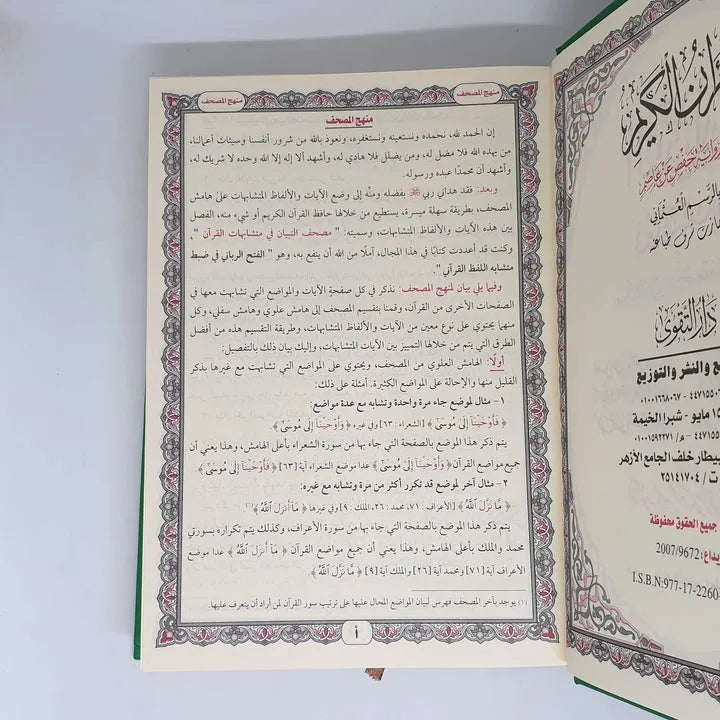 منهج المصحف
منهج المصحف
منهج المصحف
إن الحمد لله، نحمده ونستعينه ونستغفره، ونعوذ بالله من شرور أنفسنا وسيئات أعمالنا،
من يهده الله فلا مضل له، ومن يضلل فلا هادي له، وأشهد ألا إله إلا الله وحده لا شريك له،
وأشهد أن محمدًا عبده ورسوله.
وبعد: فقد هداني ربي ﷻ بفضله ومنِّه إلى وضع الآيات والألفاظ المتشابهات على هامش
المصحف، بطريقة سهلة ميسرة، يستطيع من خلالها حافظ القرآن الكريم أو شيء منه، الفصل
بين هذه الآيات والألفاظ المتشابهات، وسميته: " مصحف التبيان في متشابهات القرآن "،
وكنت قد أعددت كتابًا في هذا المجال، آملًا من الله أن ينفع به، وهو " الفتح الرباني في ضبط
متشابه اللفظ القرآني ".
وفيما يلي بيان لمنهج المصحف: نذكر في كل صفحةٍ الآيات والمواضع التي تشابهت معها في
الصفحات الأخرى من القرآن، وقمنا بتقسيم المصحف إلى هامش علوي وهامش سفلي، وكل
منهما يحتوي على نوع معين من الآيات والألفاظ المتشابهات، وطريقة التقسيم هذه من أفضل
الطرق التي يتم من خلالها التمييز بين الآيات المتشابهات، وإليك بيان ذلك بالتفصيل:
أولًا: الهامش العلوي من المصحف، ويحتوي على المواضع التي تشابهت مع غيرها بذكر
القليل منها والإحالة على المواضع الكثيرة. أمثلة على ذلك:
١ - مثال لموضع جاء مرة واحدة وتشابه مع عدة مواضع:
﴿ فَأَوْحَيْنَا إِلَىٰ مُوسَىٰ ﴾ [الشعراء: ٦٣] وفي غيره ﴿ وَأَوْحَيْنَا إِلَىٰ مُوسَىٰ ﴾.
يتم ذكر هذا الموضع بالصفحة التي جاء بها من سورة الشعراء بأعلى الهامش، وهذا يعني أن
جميع مواضع القرآن ﴿ وَأَوْحَيْنَا إِلَىٰ مُوسَىٰ ﴾ عدا موضع الشعراء آية [٦٣] ﴿ فَأَوْحَيْنَا إِلَىٰ مُوسَىٰ ﴾.
٢ - مثال آخر لموضع قد تكرر أكثر من مرة وتشابه مع غيره:
﴿ مَّا نَزَّلَ ٱللَّهُ ﴾ [الأعراف: ٧١، محمد: ٢٦، الملك: ٩] وفي غيرها ﴿ مَا أَنزَلَ ٱللَّهُ ﴾(١)
يتم ذكر هذا الموضع بالصفحة التي جاء بها من سورة الأعراف، وكذلك يتم تكراره بسورتي
محمد والملك بأعلى الهامش، وهذا يعني أن جميع مواضع القرآن ﴿ مَا أَنزَلَ ٱللَّهُ ﴾ عدا موضع
الأعراف آية [٧١] ومحمد آية [٢٦] والملك آية [٩] ﴿ مَّا نَزَّلَ ٱللَّهُ ﴾.
(١) يوجد بآخر المصحف فهرس لبيان المواضع المحال عليها على ترتيب سور القرآن لمن أراد أن يتعرف عليها.
أ
الكريم
حفص عن عاصم
بالرسم العثماني
دار التقوى
والنشر والتوزيع
٠١٠٠١٦٦٨٠٦٧ -
مايو - شبرا الخيمة
٠١٠٠١٥٩٢٢٧١ / م -
خلف الجامع الأزهر
ت / ٢٥١٤١٧٠٤
جميع الحقوق محفوظة
2007/9672
I.S.B.N:977-17-2260-